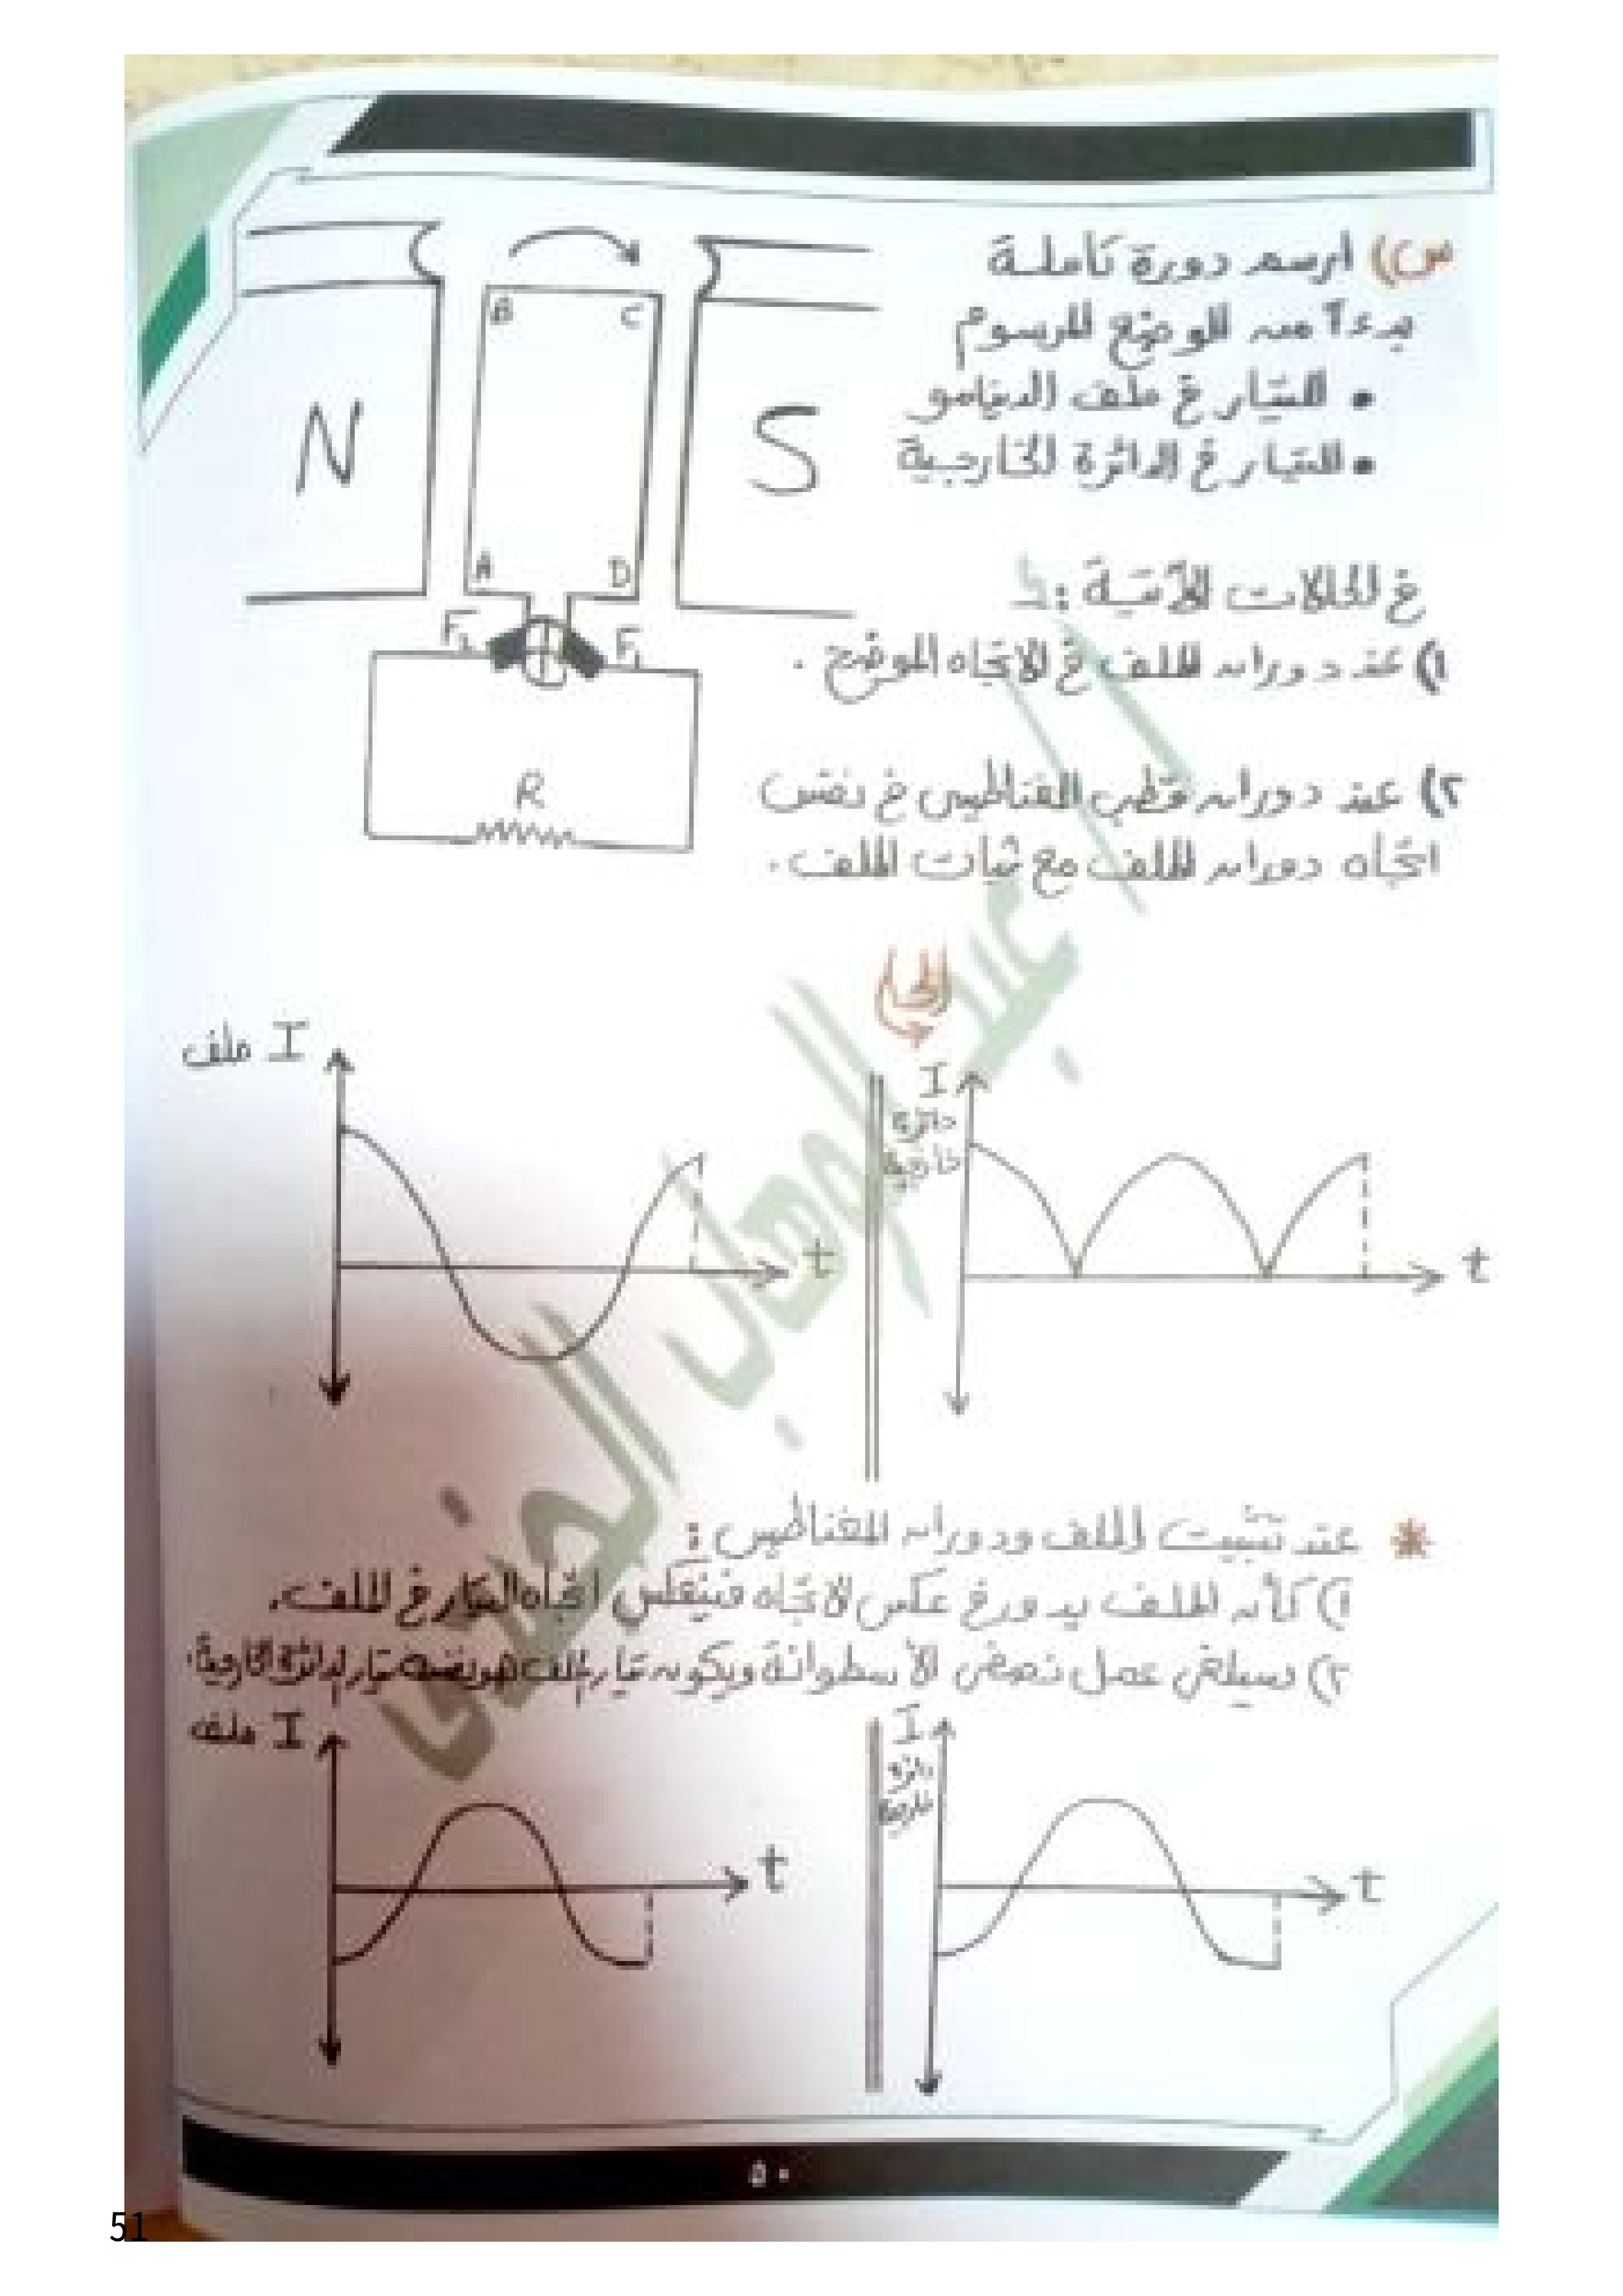 س) ارسم دورة كاملة
بدءاً من الوضع المرسوم
• للتيار في ملف الدينامو
• للتيار في الدائرة الخارجية
في الحالات الآتية :
١) عند دوران الملف في الاتجاه الموضح .
٢) عند دوران قطب المغناطيس في نفس
اتجاه دوران الملف مع ثبات الملف .
N
B C
A D
S
F₂ F₁
R
الحل
I ملف
t
I
دائرة
خارجية
t
* عند تثبيت الملف ودوران المغناطيس :
١) كأن الملف يدور في عكس الاتجاه فينعكس اتجاه التيار في الملف.
٢) سيلغى عمل نصفى الأسطوانة ويكون تيار الملف هو نفسه تيار الدائرة الخارجية.
I ملف
t
I
دائرة
خارجية
t
عبد الوهاب
٥٠
51